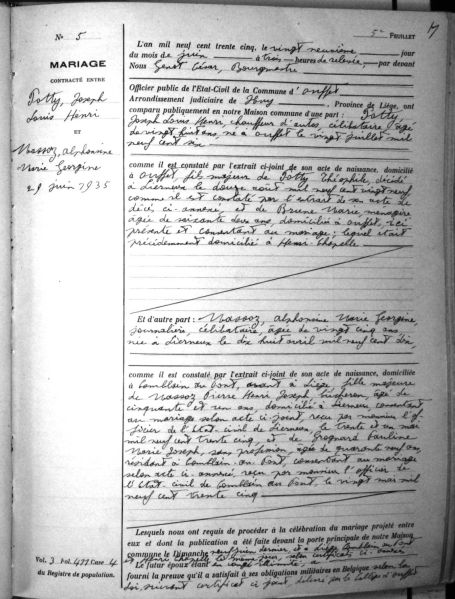 5e FEUILLET
No 5
MARIAGE
CONTRACTÉ ENTRE
Totty, Joseph
Louis Henri
ET
Massoz, Alphonsine
Marie Georgine
29 juin 1935
L'an mil neuf cent trente cinq, le vingt neuvième jour
du mois de juin à trois heures de relevée, par devant
Nous Genet César, Bourgmestre
Officier public de l'Etat-Civil de la Commune d'Ouffet
Arrondissement judiciaire de Huy, Province de Liége, ont
comparu publiquement en notre Maison commune d'une part : Totty,
Joseph Louis Henri, chauffeur d'autos, célibataire, âgé
de vingt huit ans, né à Ouffet le vingt juillet mil
neuf cent six
comme il est constaté par l'extrait ci-joint de son acte de naissance, domicilié
à Ouffet, fils majeur de Totty Théophile, décédé
à Lierneux le douze août mil neuf cent vingt neuf,
comme il est constaté par l'extrait de son acte de
décès ci-annexé, et de Brune Marie ménagère
âgée de soixante deux ans, domiciliée à Ouffet, ici
présente et consentant au mariage ; lequel était
précédemment domicilié à Henri-Chapelle
Et d'autre part : Massoz, Alphonsine Marie Georgine,
journalière, célibataire, âgée de vingt cinq ans,
née à Lierneux le dix huit avril mil neuf cent dix
comme il est constaté par l'extrait ci-joint de son acte de naissance, domiciliée
à Comblain au Pont, avant à Liège fille majeure
de Massoz Pierre Henri Joseph, âgé de
cinquante et un ans, domicilié à Lierneux consentant
au mariage selon acte ci-joint reçu par monsieur l'of
ficier de l'Etat-civil de Lierneux, le trente et un mai
mil neuf cent trente cinq, et de Grognard Pauline
Marie Joseph, sans profession, âgée de quarante neuf ans,
résidant à Comblain au Pont consentant au mariage
selon acte ci-annexé, reçu par monsieur l'officier de
l'Etat-civil de Comblain au Pont, le vingt mai mil
neuf cent trente cinq
Lesquels nous ont requis de procéder à la célébration du mariage projeté entre
eux et dont la publication a été faite devant la porte principale de notre Maison
commune le Dimanche neuf juin dernier et à Liège, Comblain au Pont
et Henri Chapelle le même jour, selon certificats ci-annexés
Le futur époux étant
fourni la preuve qu'il a satisfait à ses obligations militaires en Belgique selon la
loi, suivant certificat ci-joint, délivré par le Collège d'Ouffet
Vol. 3 Fol. 477 Case 4
du Registre de population.